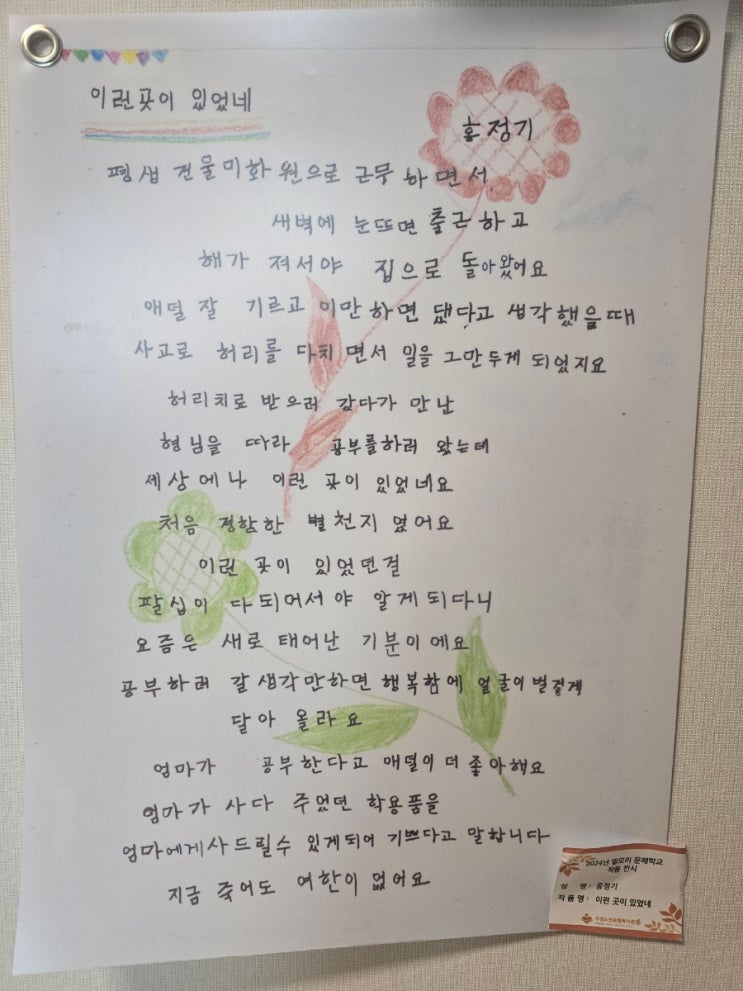 이런곳이 있었네
홍정기
평생 건물미화원으로 근무하면서
새벽에 눈뜨면 출근하고
해가 져서야 집으로 돌아왔어요
애덜 잘 기르고 이만하면 됐다고 생각했을때
사고로 허리를 다치면서 일을 그만두게 되었지요
허리치로 받으러 갔다가 만난
형님을 따라 공부를하러 왔는데
세상에나 이런 곳이 있었네요
처음 경함한 별천지 였어요
이런 곳이 있었던걸
팔십이 다되어서야 알게되다니
요즘은 새로 태어난 기분이에요
공부하러 갈생각만하면 행복함에 얼굴이벌겋게
달아 올라요
엄마가 공부한다고 애덜이 더 좋아해요
엄마가 사다 주었던 학용품을
엄마에게사드릴수 있게되어 기쁘다고 말합니다
지금 죽어도 여한이 없어요
2024년 말모이 문해학교
작품 전시
성 명 : 홍정기
작품명 : 이런 곳이 있었네